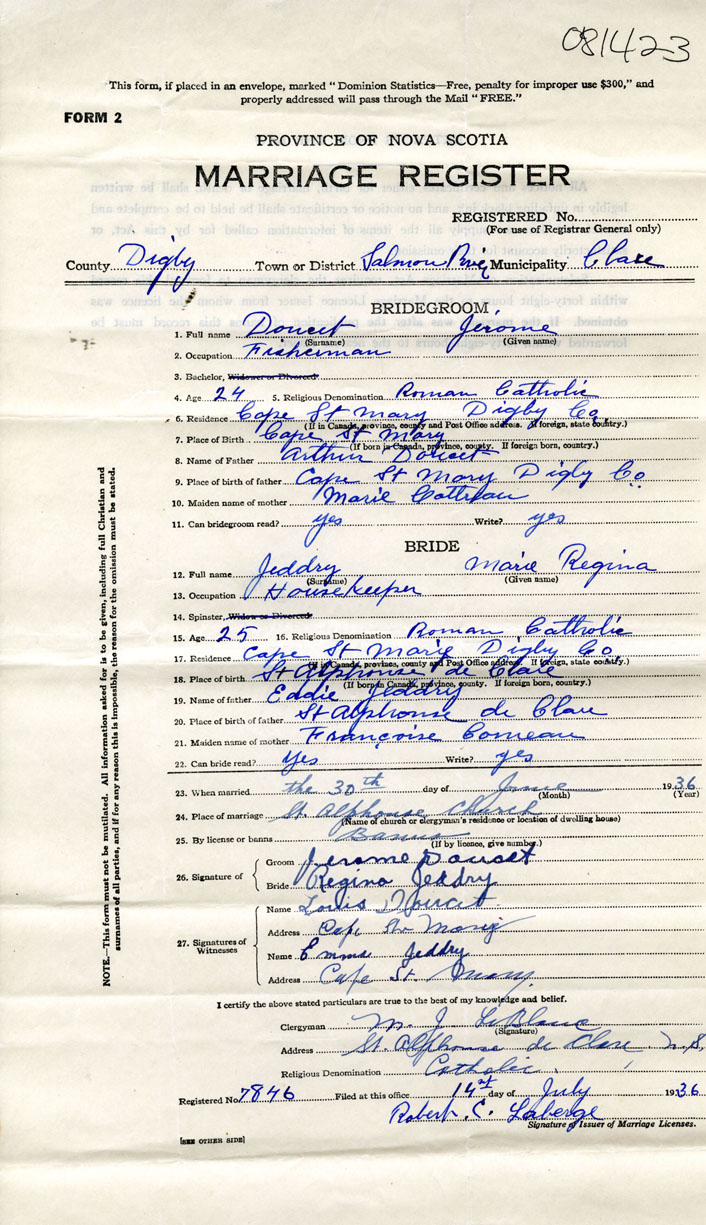 081423
This form, if placed in an envelope, marked "Dominion Statistics—Free, penalty for improper use $300," and
properly addressed will pass through the Mail "FREE."
FORM 2
PROVINCE OF NOVA SCOTIA
MARRIAGE REGISTER
REGISTERED No.
(For use of Registrar General only)
County Digby Town or District Salmon River Municipality Clare
BRIDEGROOM
1. Full name Doucet Jérome
(Surname) (Given name)
2. Occupation Fisherman
3. Bachelor, Widower or Divorced
4. Age 24 5. Religious Denomination Roman Catholic
6. Residence Cape St Mary Digby Co
(If in Canada, province, county and Post Office address. If foreign, state country.)
7. Place of Birth Cape St Mary
(If born in Canada, province, county. If foreign born, country.)
8. Name of Father Arthur Doucet
9. Place of birth of father Cape St Mary Digby Co
10. Maiden name of mother Marie Cottreau
11. Can bridegroom read? yes Write? yes
BRIDE
12. Full name Jeddry Marie Regina
(Surname) (Given name)
13. Occupation Housekeeper
14. Spinster, Widow or Divorced
15. Age 25 16. Religious Denomination Roman Catholic
17. Residence Cape St Marie Digby Co
(If in Canada, province, county and Post Office address. If foreign, state country.)
18. Place of birth St Alphonse de Clare
(If born in Canada, province, county. If foreign born, country.)
19. Name of father Eddie Jeddry
20. Place of birth of father St Alphonse de Clare
21. Maiden name of mother Françoise Comeau
22. Can bride read? yes Write? yes
23. When married the 30th day of June 1936
(Month) (Year)
24. Place of marriage St. Alphonse Church
(Name of church or clergyman's residence or location of dwelling house)
25. By license or banns Banns
(If by licence, give number.)
26. Signature of
Groom Jerome Doucet
Bride Regina Jeddry
27. Signatures of Witnesses
Name Louis Doucet
Address Cape St. Mary
Name Emma Jeddry
Address Cape St. Mary
I certify the above stated particulars are true to the best of my knowledge and belief.
Clergyman M. J. LeBlanc
(Signature)
Address St. Alphonse de Clare N.S.
Religious Denomination Catholic
Registered No. 7846 Filed at this office 14st day of July 1936
Robert. C. Laberge
Signature of Issuer of Marriage Licenses.
[SEE OTHER SIDE]
NOTE.—This form must not be mutilated. All information asked for is to be given, including full Christian and
surnames of all parties, and if for any reason this is impossible, the reason for the omission must be stated.